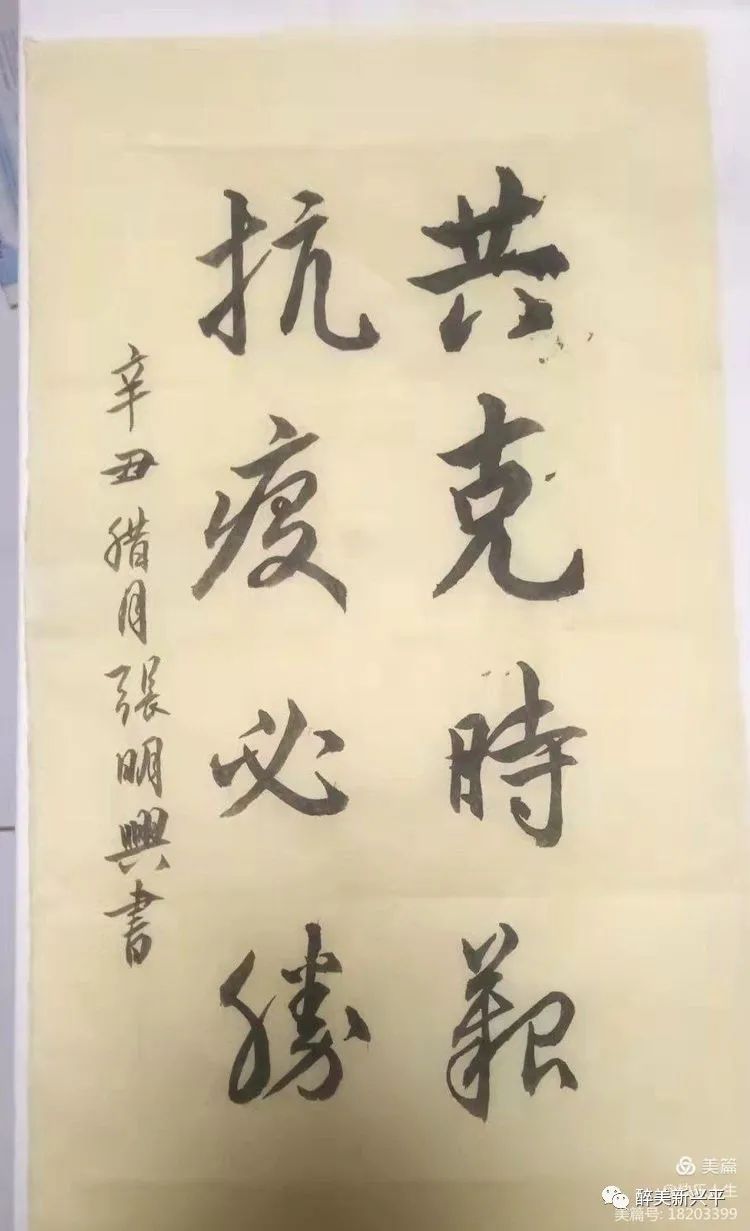 共克時艱
抗疫必勝
辛丑腊月張明興書
美篇
醉美新兴平
美篇号: 18203399